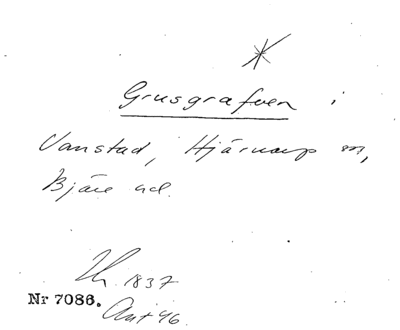 Grusgrafven i
Vanstad, Hjärnarp sn,
Bjäre hd.
1837
Nr 7086.
Ant 46